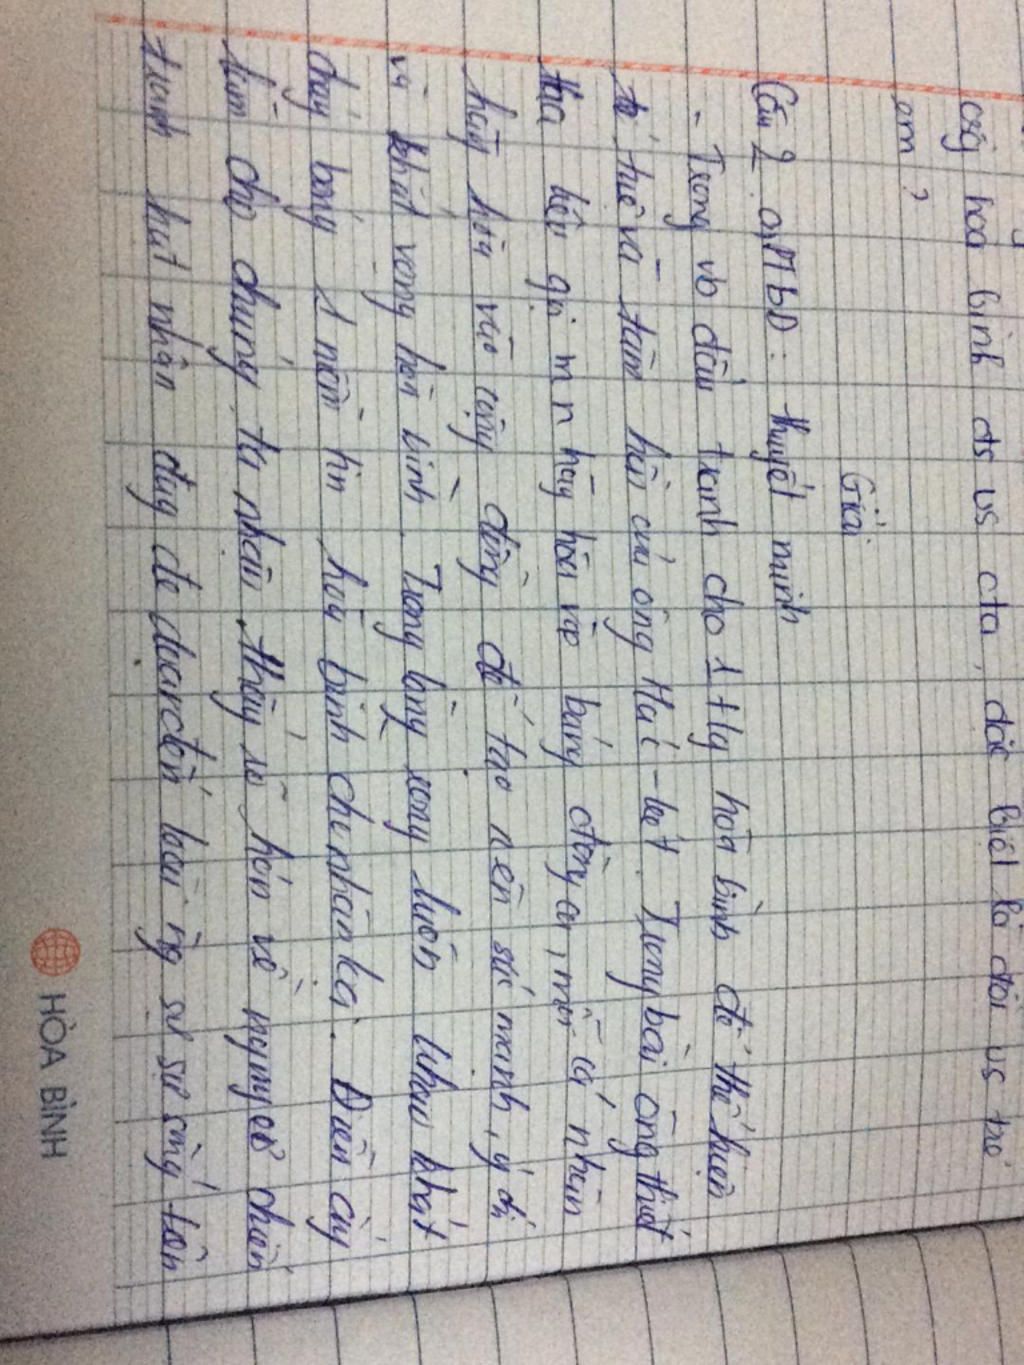 cộg hoà bình đs vs cta, đặc biệt là đối vs trẻ
em ?
Giải
Câu 2 a, PtbĐ: thuyết minh
- Trong vb đấu tranh cho 1 tg hoà bình để thể hiện
trí tuệ và tâm hồn của ông Mac-két. Trong bài ông thiết
tha kêu gọi m n hãy hòa vào bảng đồng ca, mỗi cá nhân
hãy hòa vào cộng đồng để tạo nên sức mạnh, ý chí
và khát vọng hòa bình. Trong lòng cộng luôn khát
cháy bỏng 1 niềm tin hòa bình cho nhân loại. Điều này
làm cho chúng ta nhận thấy rõ hơn về nguy cơ chiến
tranh hạt nhân đag đe doạ đến loài ng và sự sống trên
HÒA BÌNH